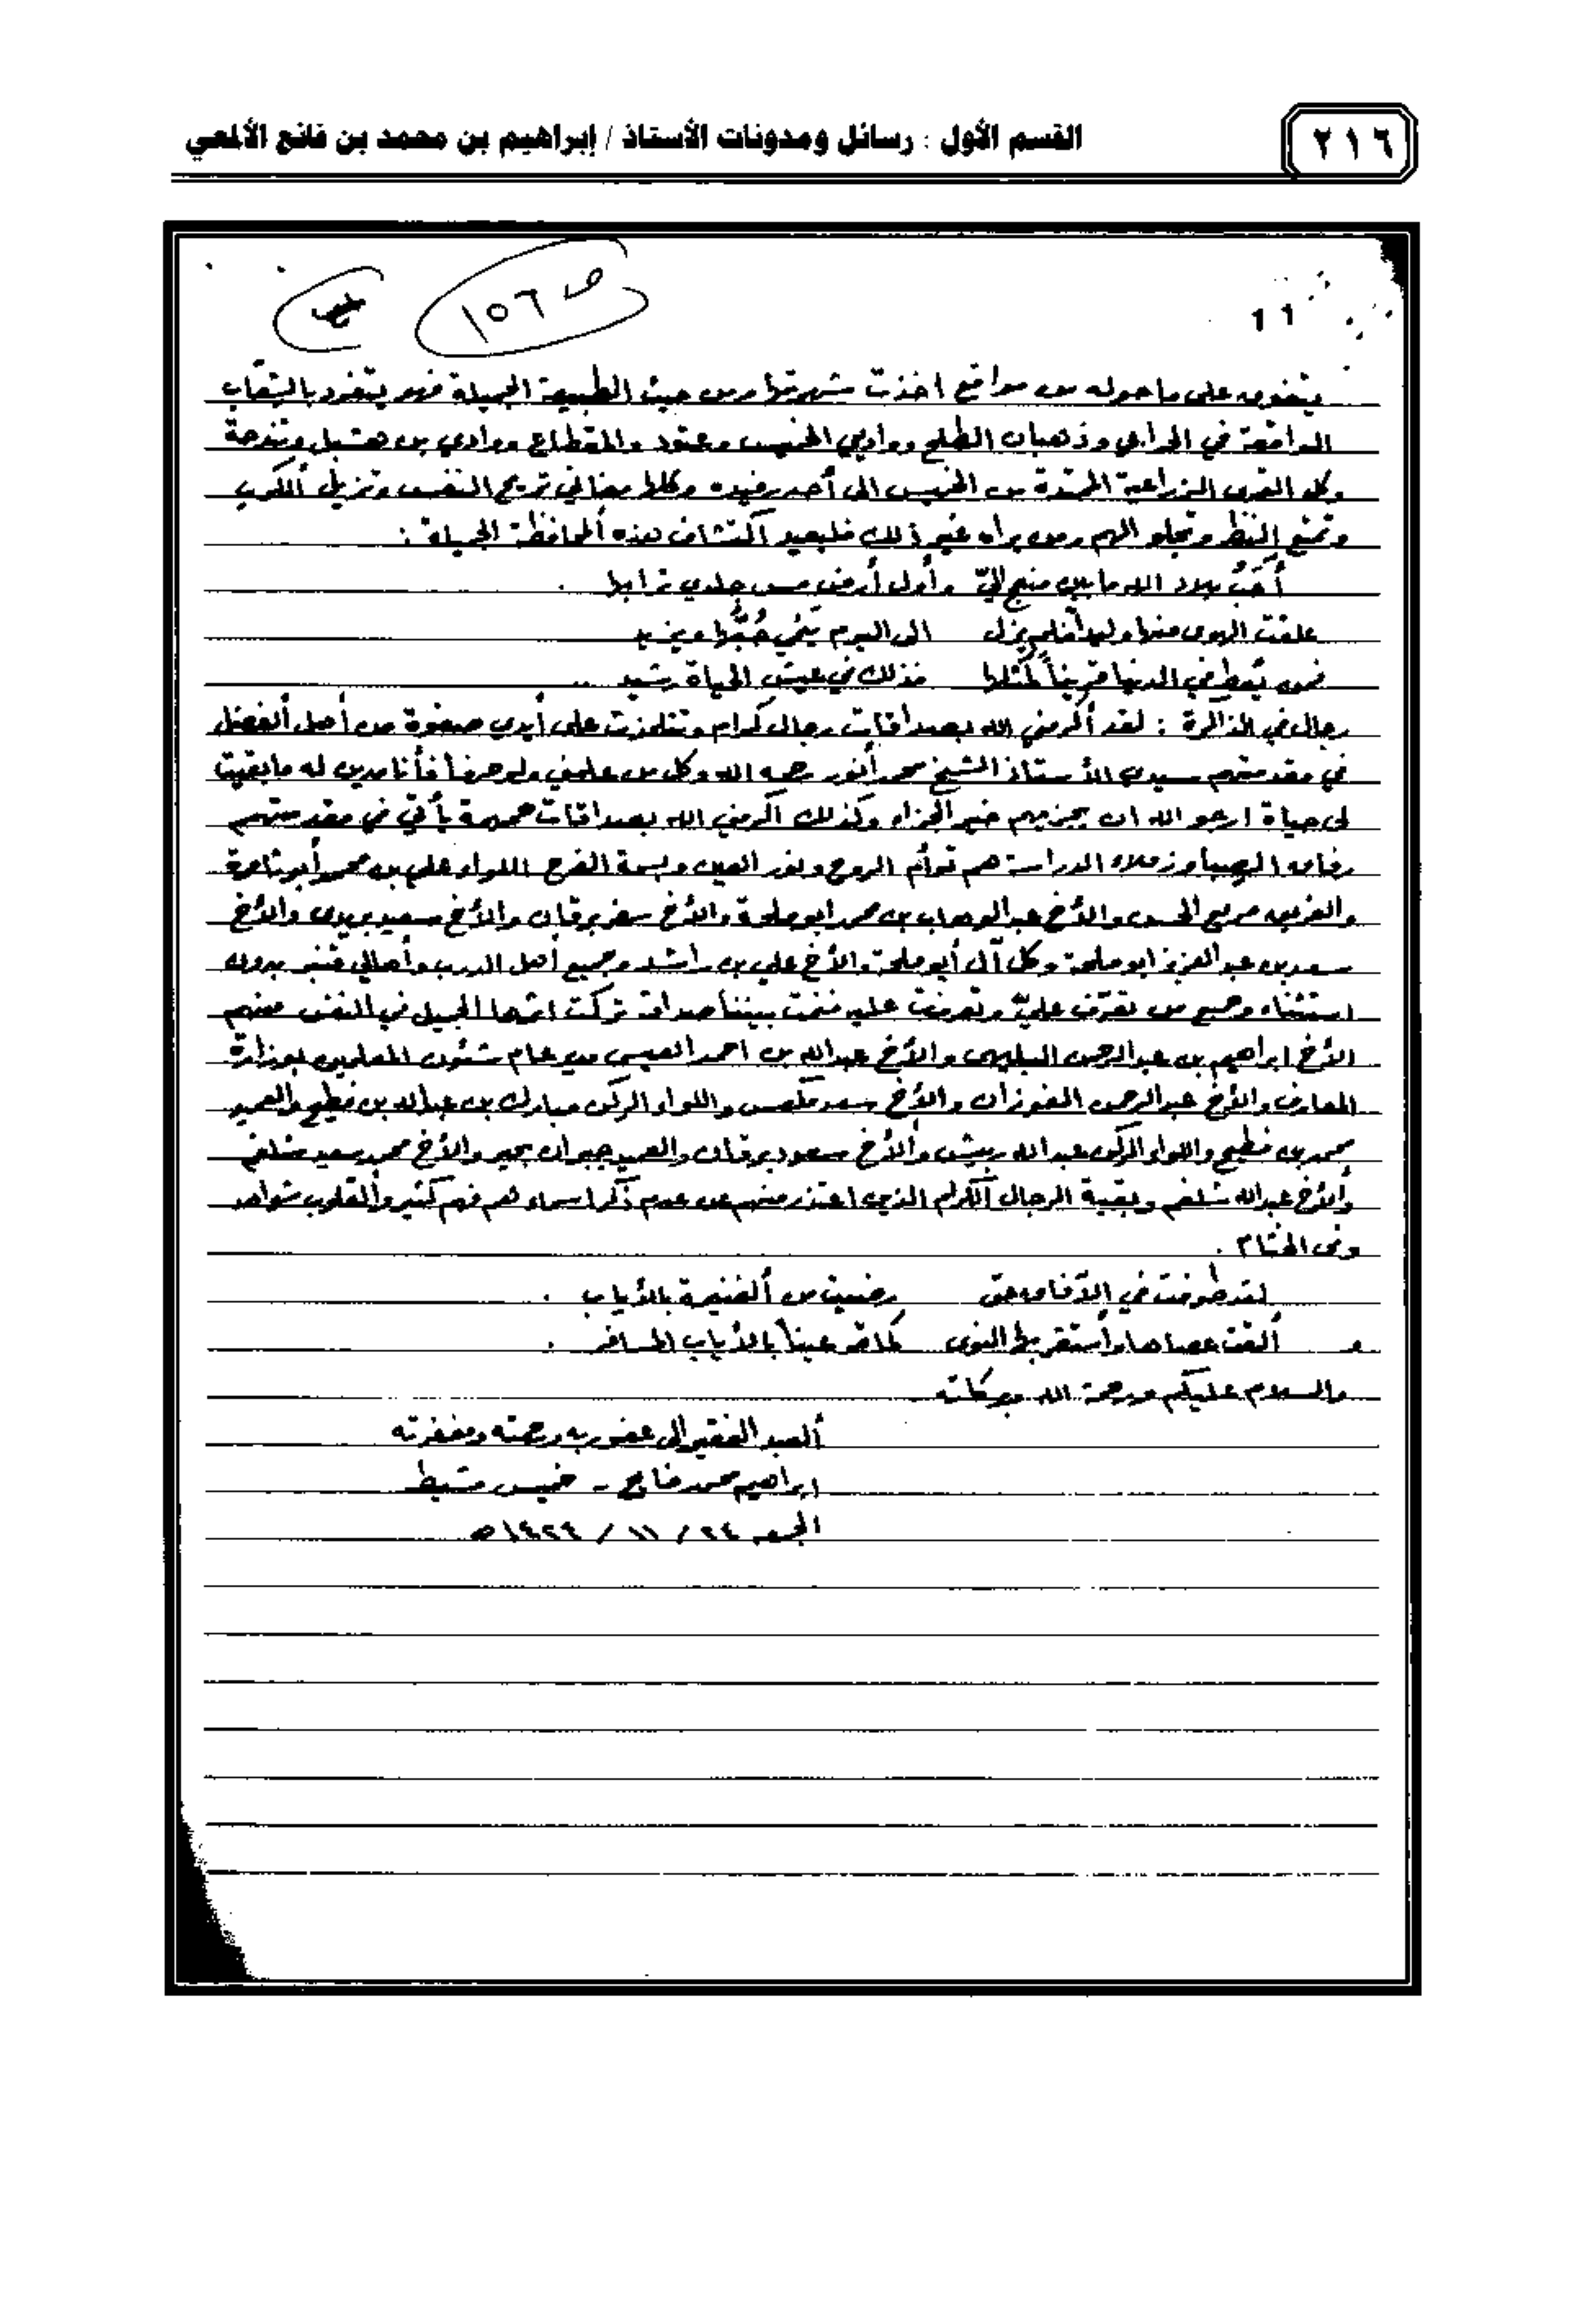 ٢١٦
القسم الأول : رسائل ومدونات الأستاذ / إبراهيم بن محمد بن فائع الألمعي
ص ١٥٦
11
يتفوق على ما حوله من مواقع اخذت شهرتها من حيث الطبيعة الجميلة فهو يتفرد بالشعاب
الواقعة في الحرابي وذهبان الطلح ووادي الخميس وعتود والمقطاع ووادي بن هشبل وتندحة
وكل القرى الزراعية الممتدة من الخميس الى أحد رفيده وكلها مغاني تريح النفس وتزيل الكرب
وتمتع النظر وتجلو الهم ومن يراه غير ذلك فليعيد اكتشاف هذه المحافظة الجميلة :
أحَبُّ بلاد الله ما بين منعج اليّ وأول أرض مس جلدي ترابها .
علقت الهوى منها وليداً فلم يزل الى اليوم ينمي حُبُّها ويزيد
فمن يُعطِ في الدنيا قريناً كمثلها فذلك في عيش الحياة رشيد ..
رجال في الذاكرة : لقد أكرمني الله بصداقات رجال كرام وتتلمذت على أيدي صفوة من أهل الفضل
في مقدمتهم سيدي الأستاذ الشيخ محمد أنور رحمه الله وكل من علمني ولو حرفاً فأنا مدين له ما بقيت
لي حياة ارجو الله ان يجزيهم خير الجزاء وكذلك اكرمني الله بصداقات حميمة يأتي في مقدمتهم
رفاق الصبا وزملاء الدراسة هم توأم الروح ونور العين وبسمة الفرح اللواء علي بن محمد أبو تاعمة
والعريف مريع الحسن والأخ عبدالوهاب بن محمد ابو ملحة والأخ سفر برقان والأخ سعيد بريدي والأخ
سعد بن عبد العزيز ابو ملحة وكل آل أبو ملحة والأخ علي بن راشد وجميع أهل الدرب وأهالي قنبر بدون
استثناء وجميع من تعرّف عليّ وتعرفت عليه فنمت بيننا صداقة تركت اثرها الجميل في النفس منهم
الأخ ابراهيم بن عبدالرحمن البليهي والأخ عبدالله بن احمد العيسى مدير عام شئون المعلمين بوزارة
المعارف والأخ عبدالرحمن الفوزان والأخ سعد ملعس واللواء الركن مبارك بن عبدالله بن فطيح والعميد
محمد بن فطيح واللواء الركن عبدالله ربيش والأخ مسعود برقان والعميد جبران بجير والأخ محمد سعيد شلغم
والأخ عبدالله شلغم وبقية الرجال الكرام الذين اعتذر منهم عن عدم ذكر اسماءهم فهم كثير والقلوب شواهد
وفي الختام .
لقد طوفت في الآفاق حتى رضيت من الغنيمة بالأياب .
و ألقت عصاها وأستقر بها النوى كما قر عيناً بالأياب المسافر .
والسلام عليكم ورحمة الله وبركاته
العبد الفقير الى عفو ربه ورحمته ومغفرته
ابراهيم محمد فايع - خميس مشيط
الجمعه ٢٤ / ١١ / ١٤٢٤هـ